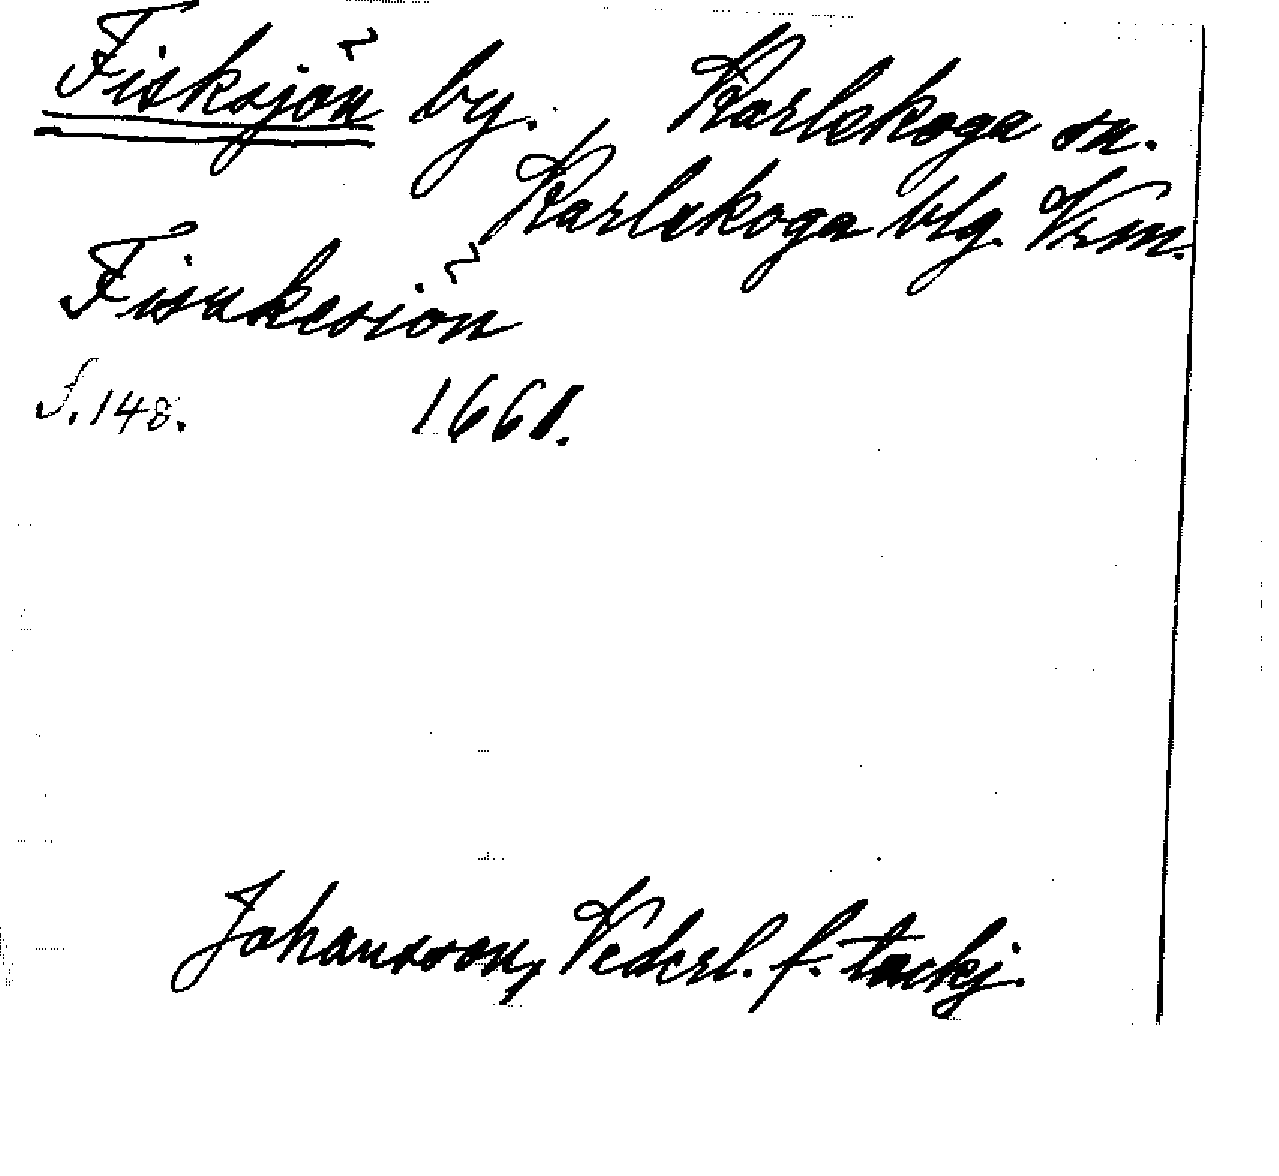 Fisksjön by. Karlskoga sn.
Karlskoga blg. Vrm.
Fisakesiön
S. 148. 1661.
Johansson, Vederl. f. tackj.